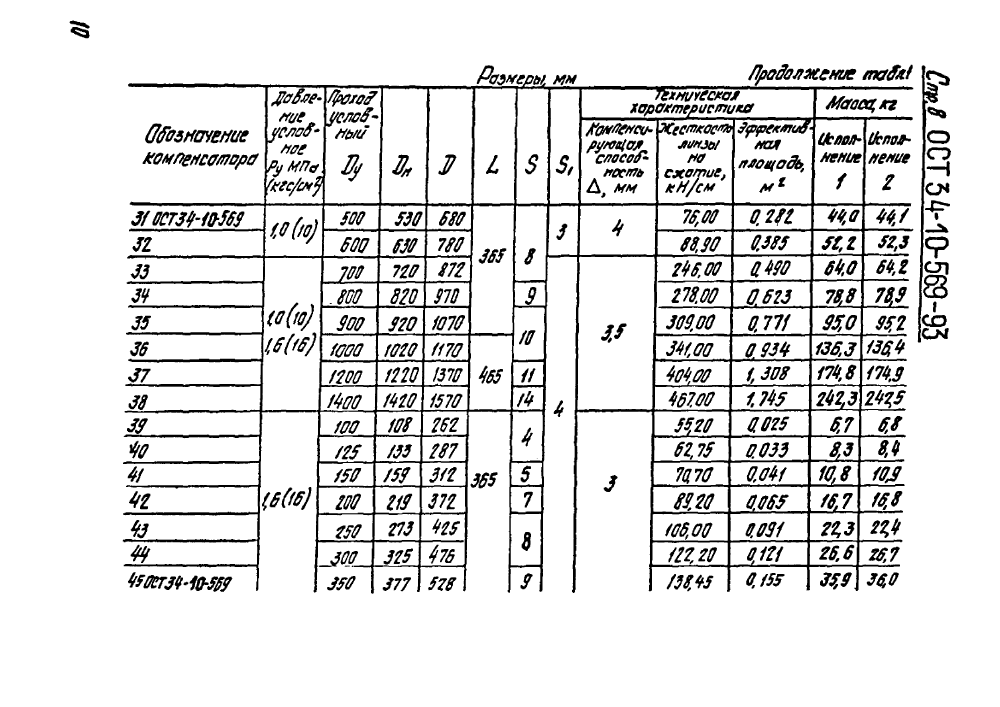 10
Стр. 8 ОСТ 34-10-569-93
Размеры, мм Продолжение табл. 1
Обозначение компенсатора
Давление условное Ру МПа (кгс/см²)
Проход условный Dу
Dн
D
L
S
S₁
Техническая характеристика
Компенсирующая способность Δ, мм
Жесткость линзы на сжатие, кН/см
Эффективная площадь, м²
Масса, кг
Исполнение 1
Исполнение 2
31 ОСТ34-10-569 1,0 (10) 500 530 680 365 8 3 4 76,00 0,282 44,0 44,1
32 600 630 780 88,90 0,385 52,2 52,3
33 1,0 (10) 1,6 (16) 700 720 872 4 3,5 246,00 0,490 64,0 64,2
34 800 820 970 9 278,00 0,623 78,8 78,9
35 900 920 1070 10 309,00 0,771 95,0 95,2
36 1000 1020 1170 465 341,00 0,934 136,3 136,4
37 1200 1220 1370 11 404,00 1,308 174,8 174,9
38 1400 1420 1570 14 467,00 1,745 242,3 242,5
39 1,6 (16) 100 108 262 365 4 3 55,20 0,025 6,7 6,8
40 125 133 287 62,75 0,033 8,3 8,4
41 150 159 312 5 70,70 0,041 10,8 10,9
42 200 219 372 7 89,20 0,065 16,7 16,8
43 250 273 425 8 106,00 0,091 22,3 22,4
44 300 325 476 122,20 0,121 26,6 26,7
45 ОСТ34-10-569 350 377 528 9 138,45 0,155 35,9 36,0